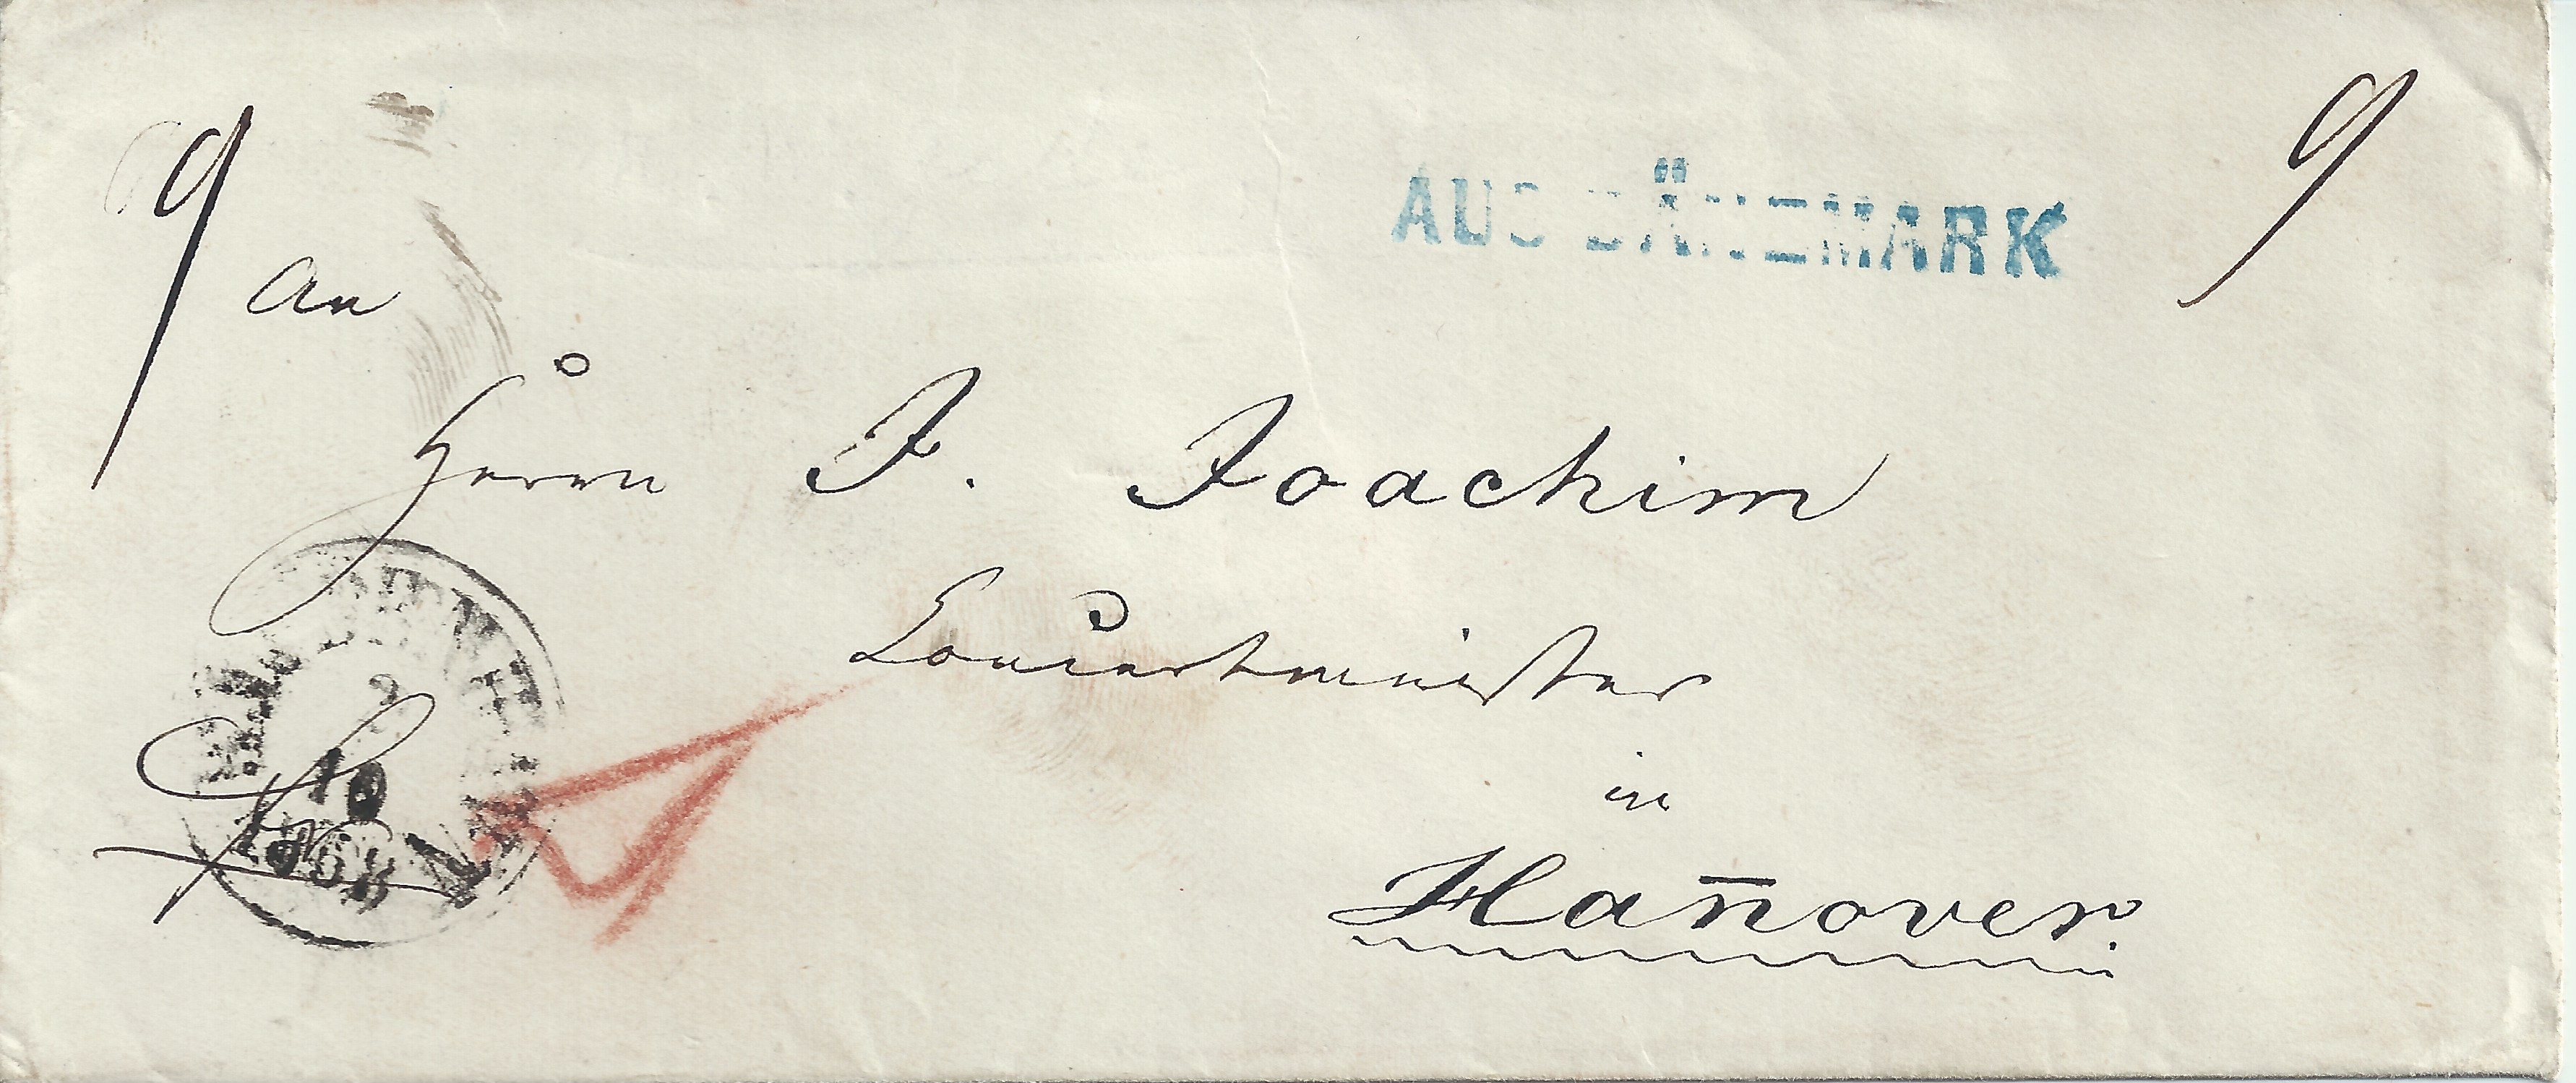 9
9
AUS DÄNEMARK
An
Herrn J. Joachim
Concertmeister
in
Han̄over.
2
10
1868